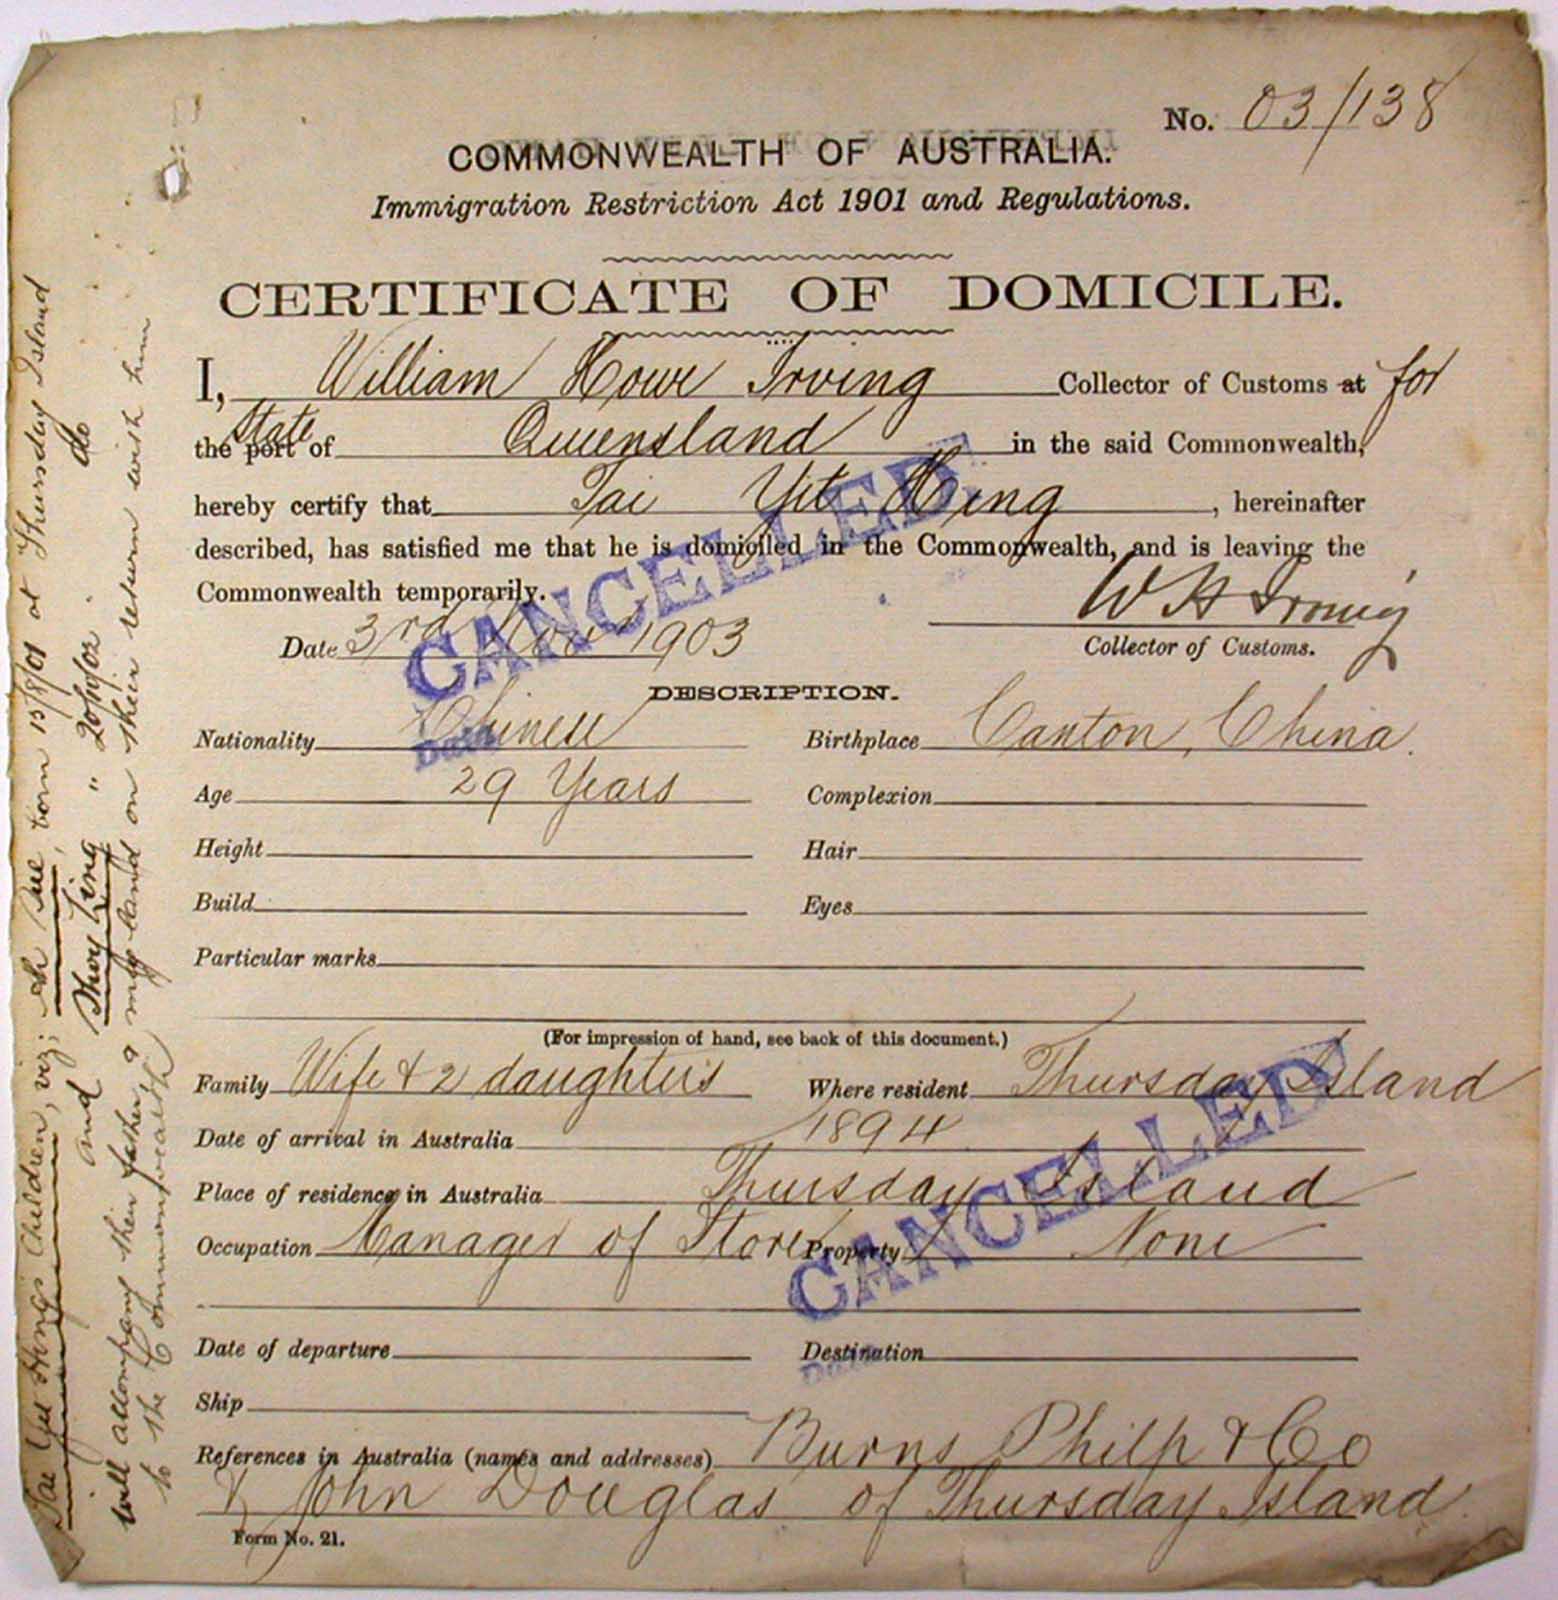 No. 03/138
COMMONWEALTH OF AUSTRALIA.
Immigration Restriction Act 1901 and Regulations.
CERTIFICATE OF DOMICILE.
I, William Howe Irving Collector of Customs at for
the port State of Queensland in the said Commonwealth,
hereby certify that Tai Yit Hing, hereinafter
described, has satisfied me that he is domiciled in the Commonwealth, and is leaving the
Commonwealth temporarily.
W H Irving
Date 3rd Nov 1903
Collector of Customs.
CANCELLED
Date
DESCRIPTION.
Nationality Chinese Birthplace Canton, China.
Age 29 Years Complexion
Height Hair
Build Eyes
Particular marks
(For impression of hand, see back of this document.)
Family Wife & 2 daughters Where resident Thursday Island
Date of arrival in Australia 1894
Place of residence in Australia Thursday Island
Occupation Manager of Store Property None
CANCELLED
Date of departure Destination
Ship
References in Australia (names and addresses) Burns Philp & Co
& John Douglas of Thursday Island
Form No. 21.
Hing's Children, viz; Ah Sue, born 15/8/01 at Thursday Island
and " 20/10/02 do
will accompany their father, & may land on their return with him
to the Commonwealth